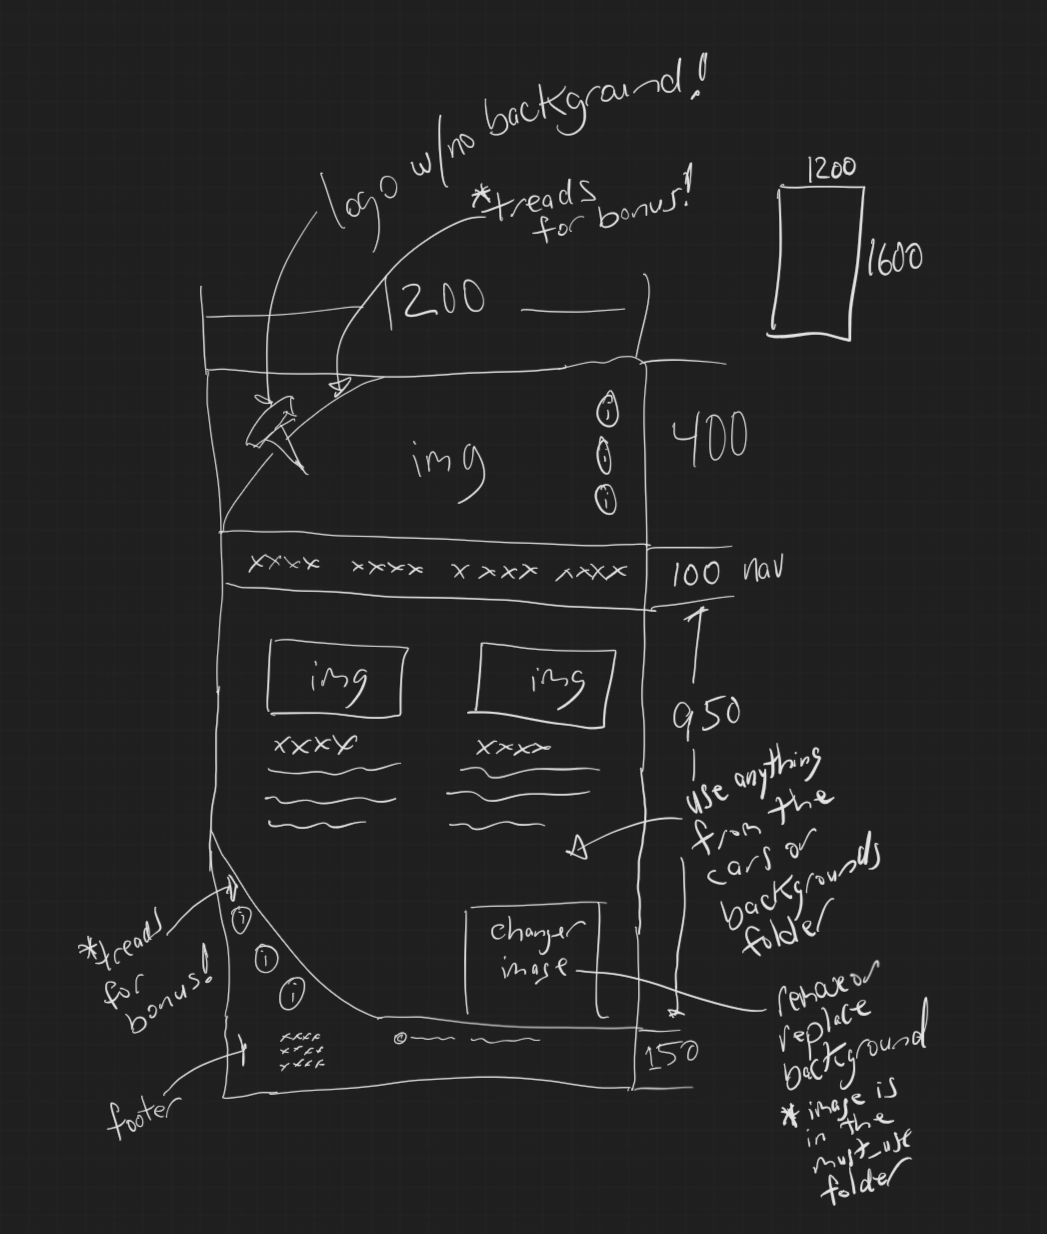 logo w/no background!
*treads
for bonus!
1200
1200
1600
img
i
i
i
400
xxxx xxxx xxxx xxxx
100 nav
img
img
950
xxxx
xxxx
use anything
from the
cars or
backgrounds
folder
*treads
for
bonus!
i
i
i
changer
image
remove or
replace
background
* image is
in the
must_use
folder
xxxx
xxxx
xxxx
150
footer